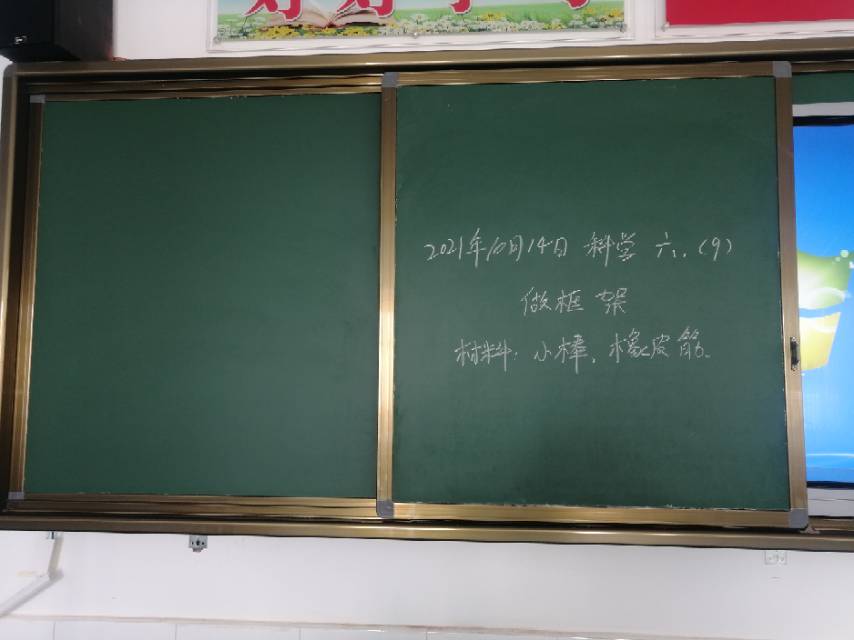 2021年10月14日 科学 六.(9)
做框架
材料：小棒，橡皮筋.